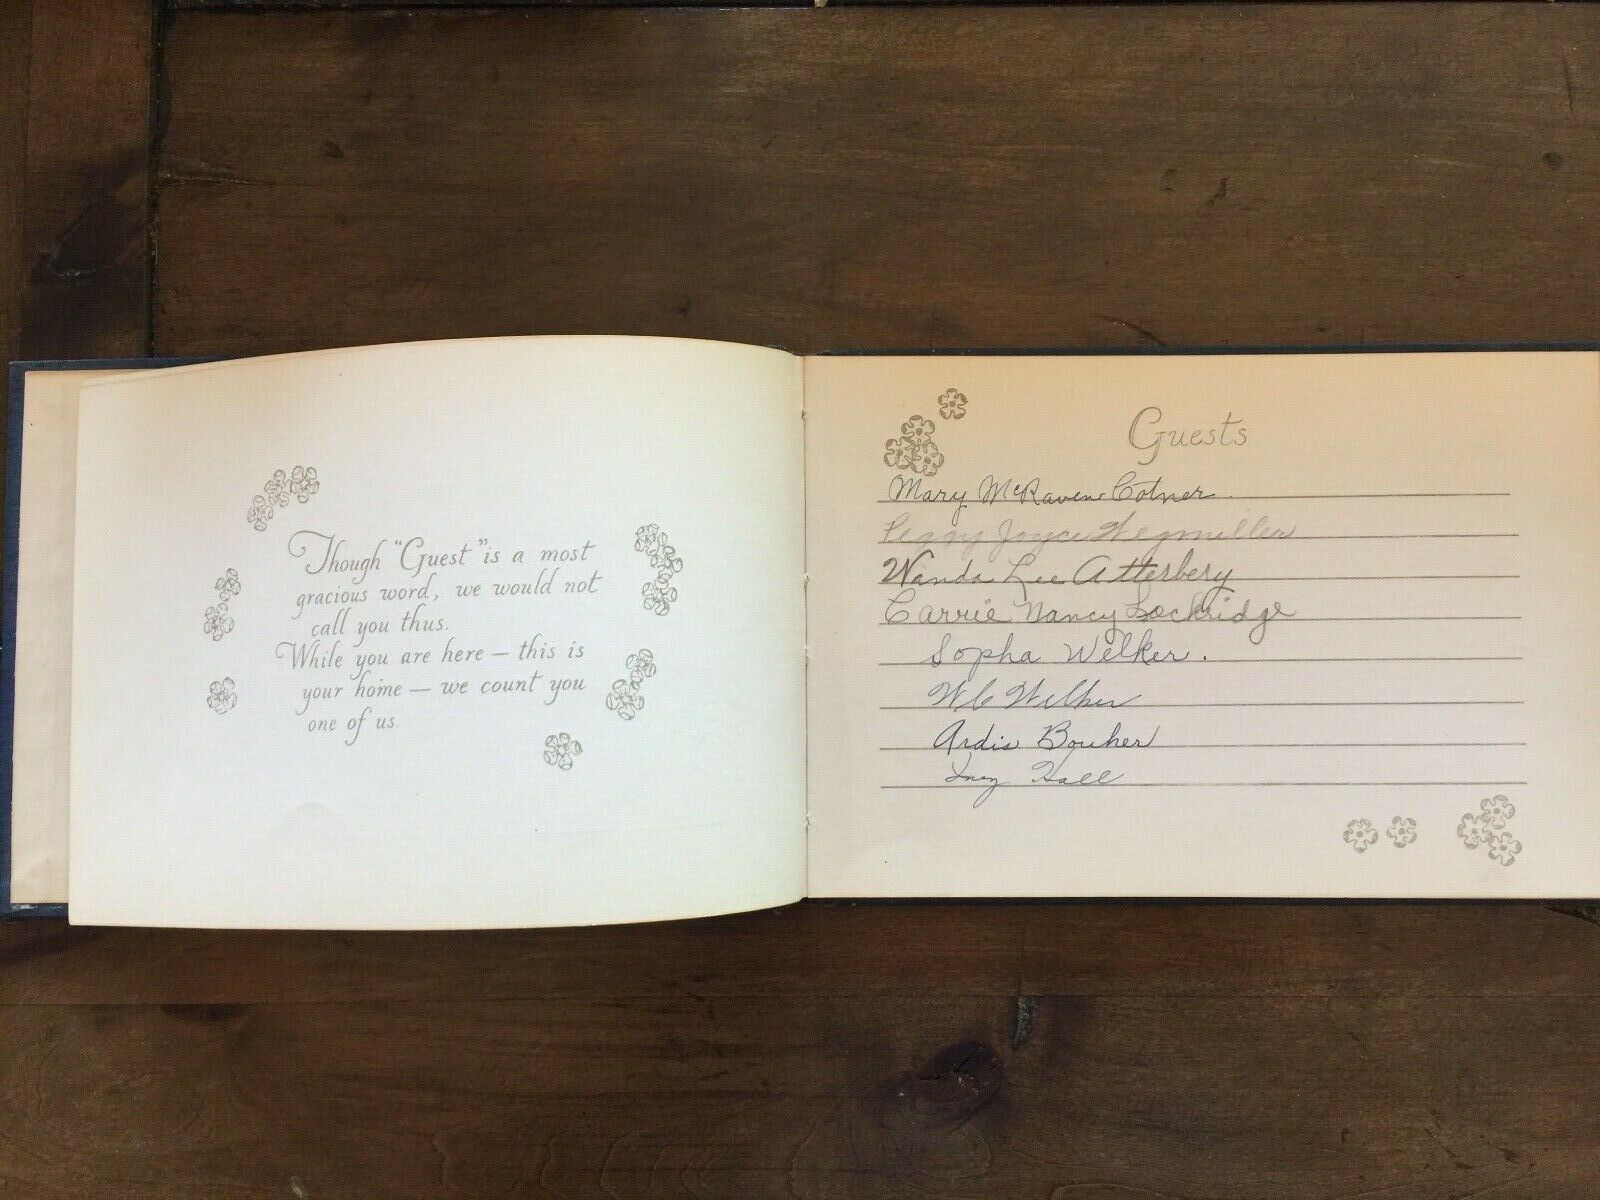 Though "Guest" is a most
gracious word, we would not
call you thus.
While you are here — this is
your home — we count you
one of us.
Guests
Mary McRaven Cotner.
Peggy Joyce Wegmiller
Wanda Lee Atterbery
Carrie Nancy Lockridge
Sopha Welker.
WC Welker
Ardis Bouher
Hall